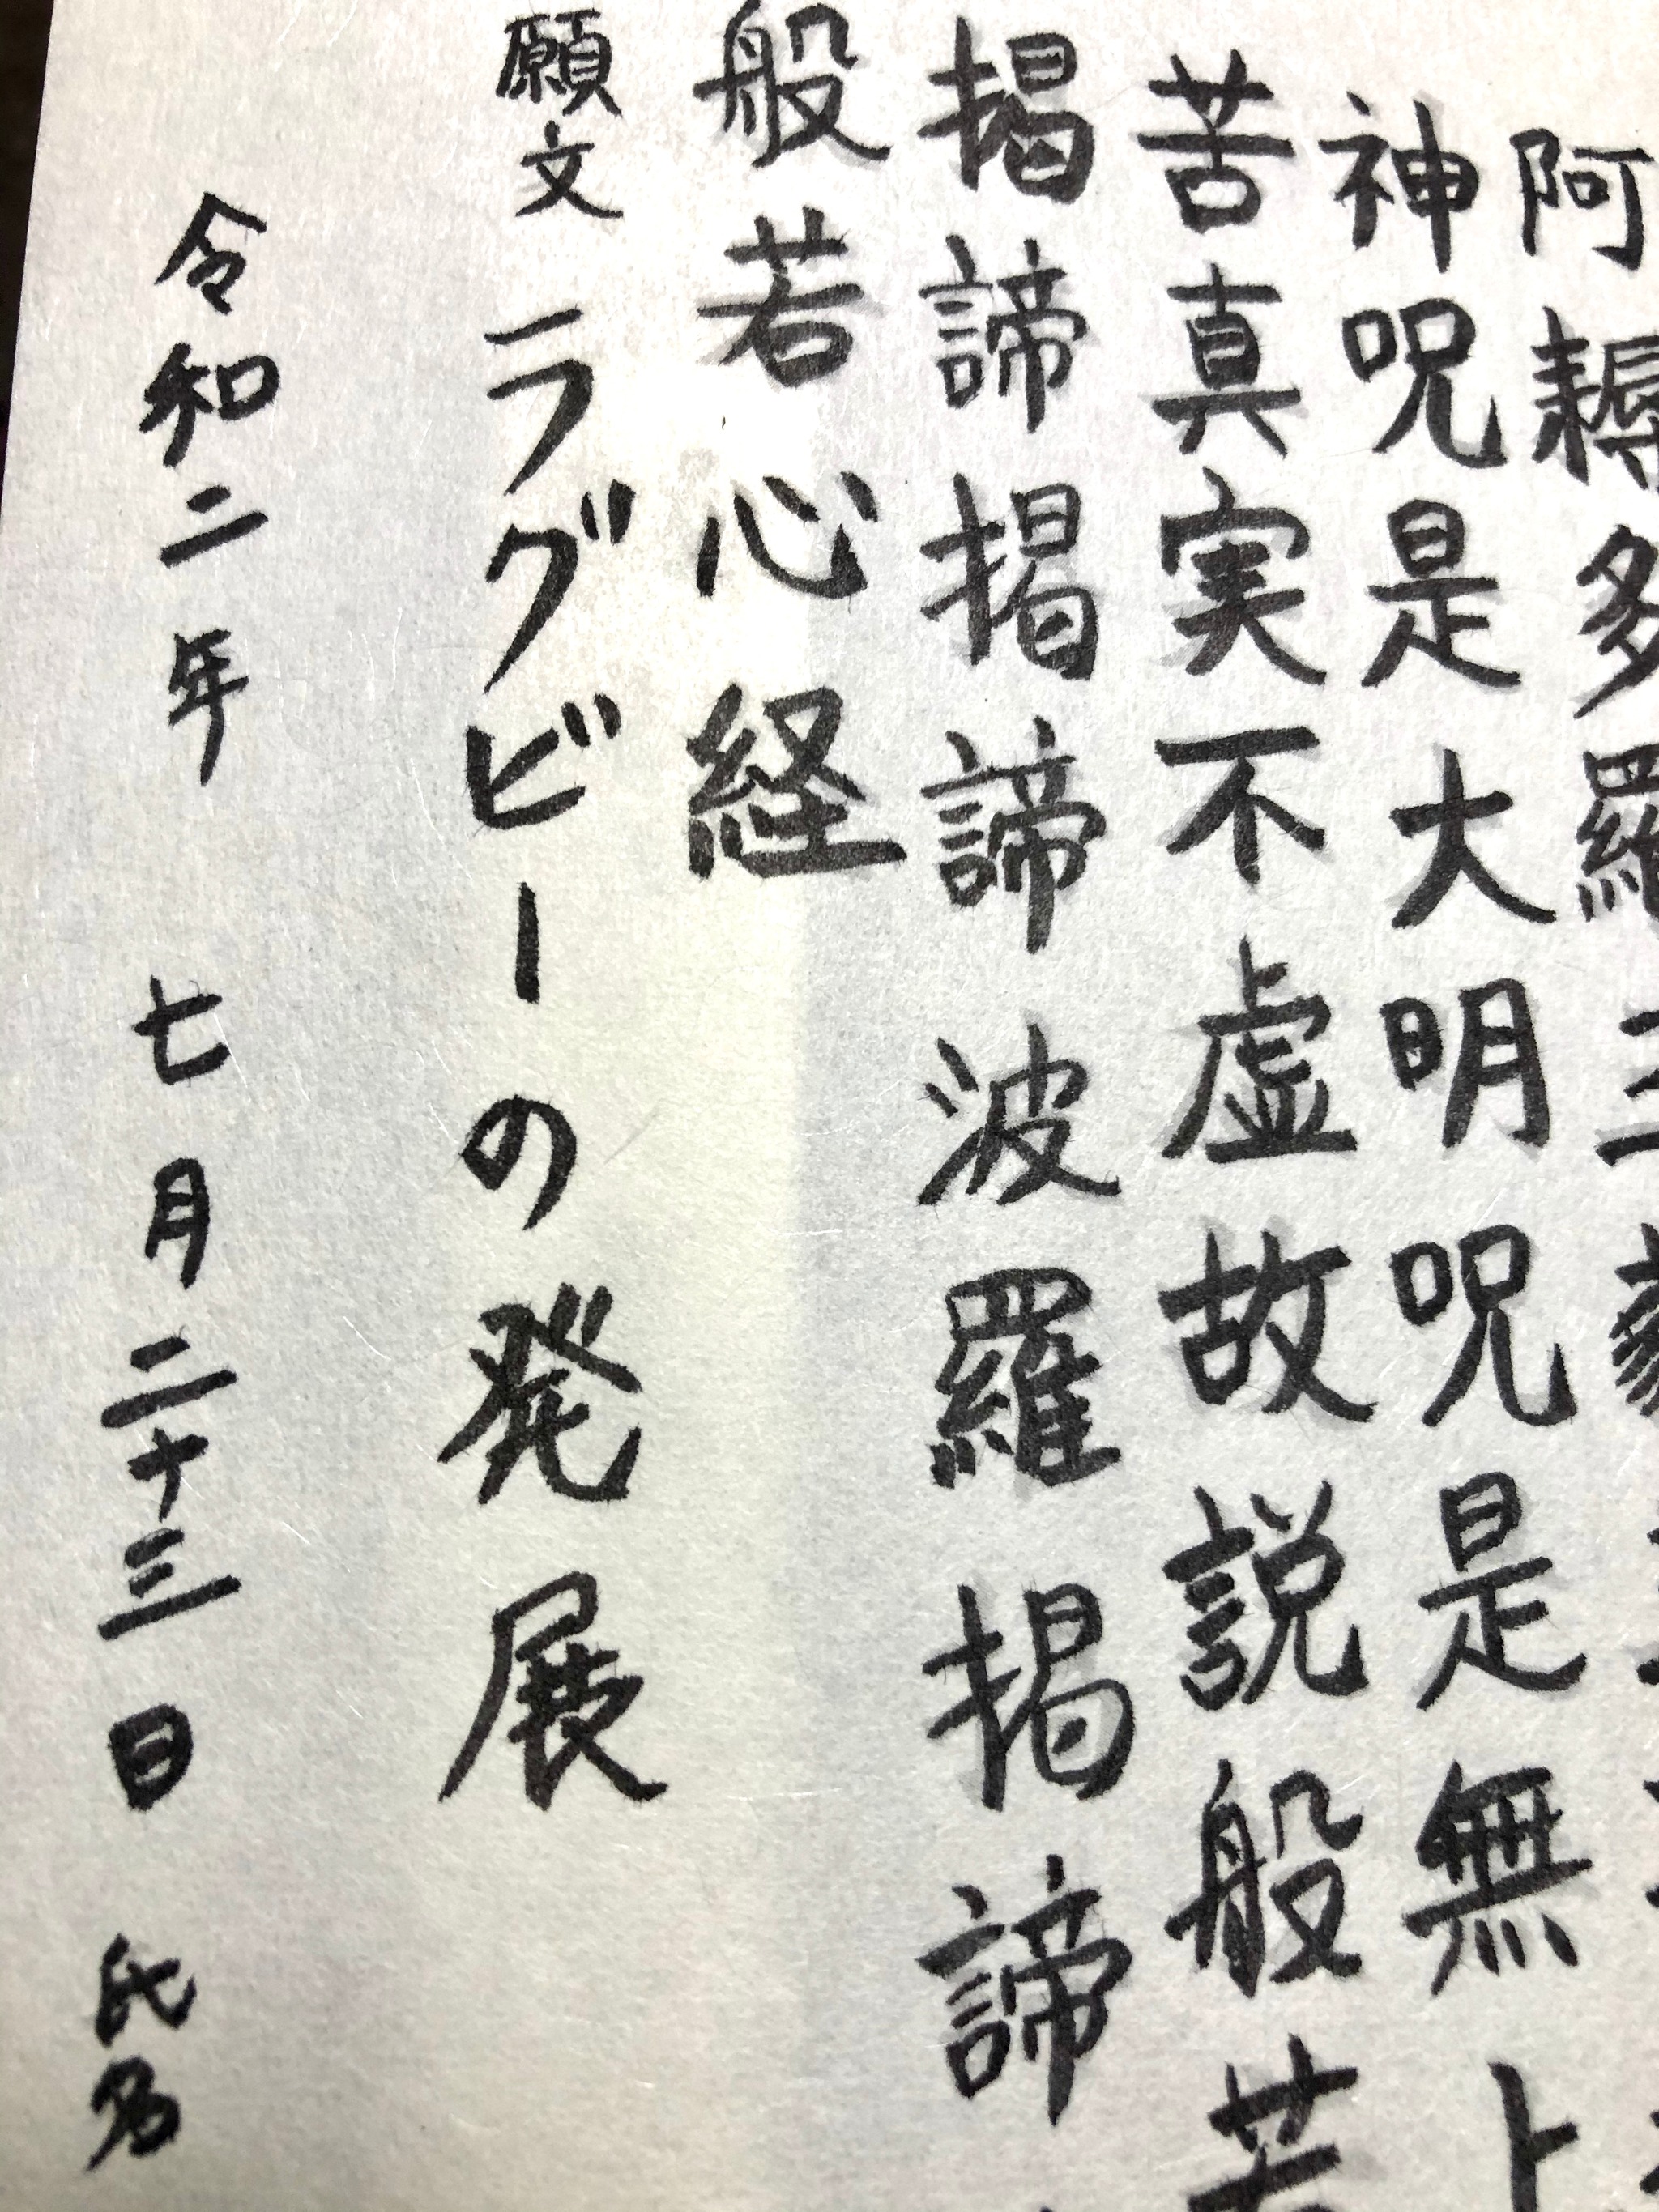 阿耨多羅三藐
神呪是大明呪是無上
苦真実不虚故説般若
掲諦掲諦波羅掲諦
般若心経
願文 ラグビーの発展
令和二年 七月二十三日 氏名